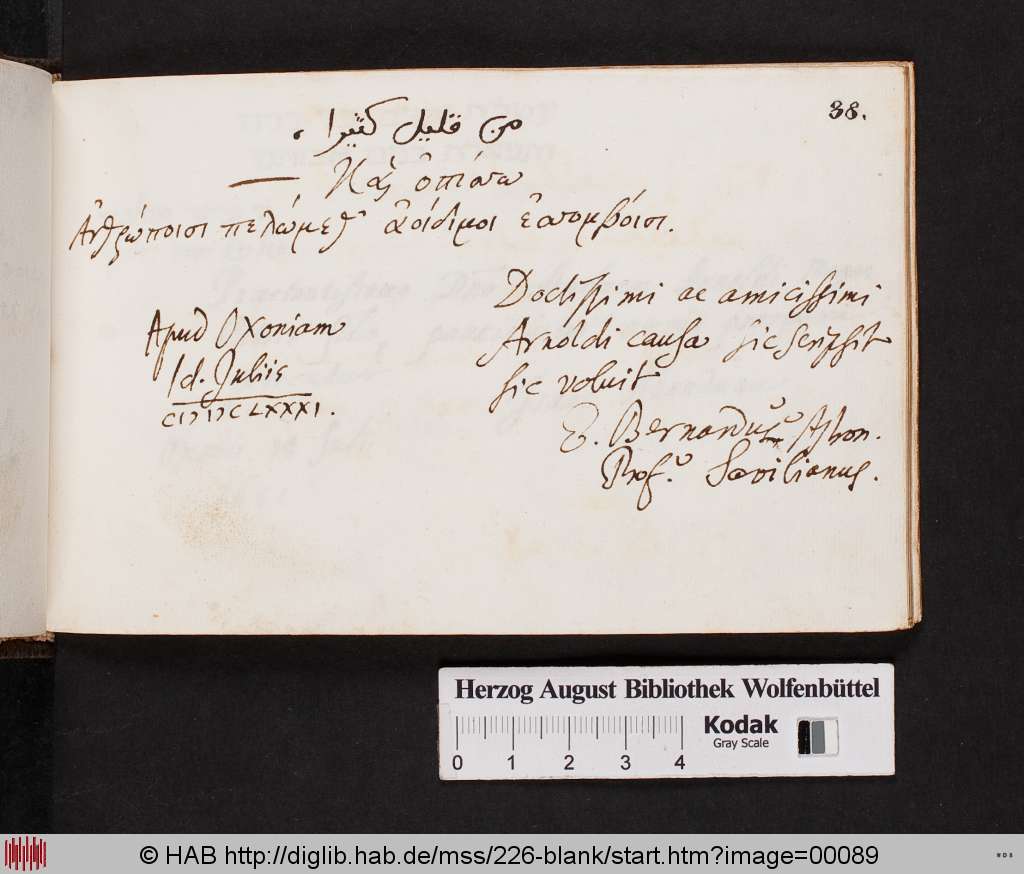 38.
من قليل كثيرا
— Καὶ ὀπίσσω
Ἀνθρώποισι πελώμεθ' ἀοίδιμοι ἐσσομένοισι.
Doctissimi ac amicissimi
Arnoldi causa sic scripsit
sic voluit
E. Bernardus Astron.
Prof. Savilianus.
Apud Oxoniam
Id. Juliis
CIↃIↃCLXXXI.
Herzog August Bibliothek Wolfenbüttel
Kodak
Gray Scale
0 1 2 3 4
© HAB http://diglib.hab.de/mss/226-blank/start.htm?image=00089